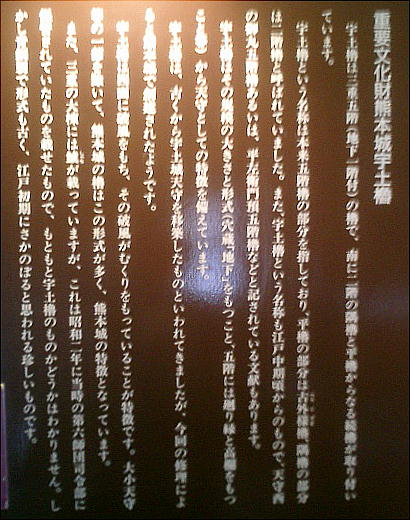 重要文化財熊本城宇土櫓
宇土櫓は三重五階（地下一階付）の櫓で、南に二階の隅櫓と平櫓からなる続櫓が取り付い
ています。
宇土櫓という名称は本来五階櫓の部分を指しており、平櫓の部分は古外様櫓、隅櫓の部分
は二階櫓と呼ばれています。また、宇土櫓という名称も江戸中期頃からのもので、天守西
の御丸五階櫓あるいは、平左衛門丸五階櫓などと記されている文献もあります。
宇土櫓はその規模の大きさと形式（穴蔵「地下」をもつこと、五階には廻り縁と高欄をもつ
こと等）から天守としての特徴を備えています。
宇土櫓は、古くから宇土城天守を移築したものといわれてきましたが、今回の修理によ
り、当地で創建されたようです。
宇土櫓は各層に破風をもち、その破風がむくりをもっていることが特徴です。大小天守
の一部を除いて、熊本城の櫓はこの形式が多く、熊本城の特徴となっています。
また、三重の大棟には鯱が載っていますが、これは昭和二年に当時の第六師団司令部に
保管されていたものを載せたもので、もともと宇土櫓のものかどうかはわかりません。し
かし青銅製で形式も古く、江戸初期にさかのぼると思われる珍しいものです。